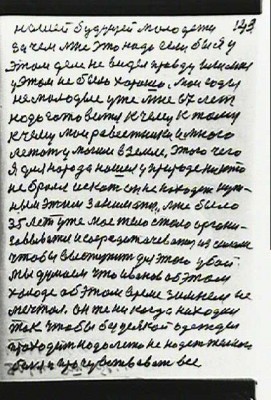 нашей будущей молодежи 143
зачем мне это надо если бы я у
этом деле не видел правду
у этом не было хорошо. мои годы
не молодые уже мне 67 лет
надо готовится к чему к тому
к чему мои равестники и много
лежат у могиле в земле, этого чего
я для народа нашел у природе никто
не брал и искат он не находит нуж-
ным этим заниматся, мне было
35 лет уже мое тело стало органи-
зовывати и сорадотачеватся из силами
чтобы выступит для этого у бой.
мы думаем что иванов об этом
холоде об этом время зимнем не
мечтал. он те ни когда находки
так чтобы без всякой одежды
проходит надо лето не надет теплого
белья и прочуствовать все